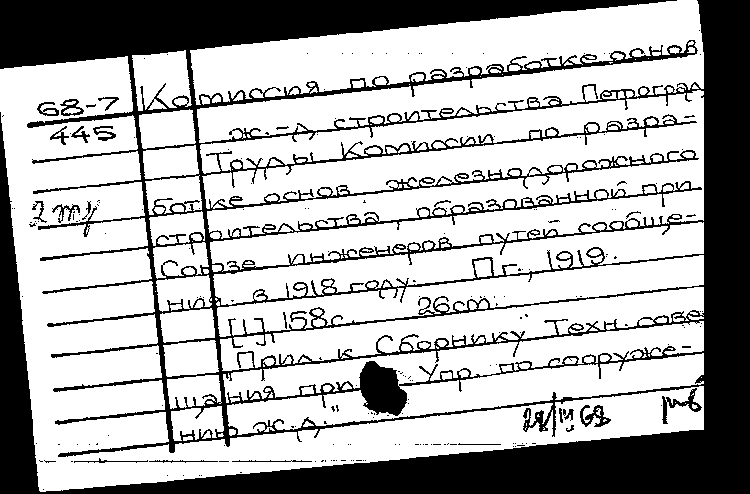 68-7
445
2 экз
Комиссия по разработке основ
ж.-д. строительства. Петроград.
Труды Комиссии по разра-
ботке основ железнодорожного
строительства, образованной при
Союзе инженеров путей сообще-
ния в 1918 году. Пг., 1919.
[1], 158с. 26см.
"Прил. к Сборнику Техн. сове-
щания при Упр. по сооруже-
нию ж.д."
28/III 68